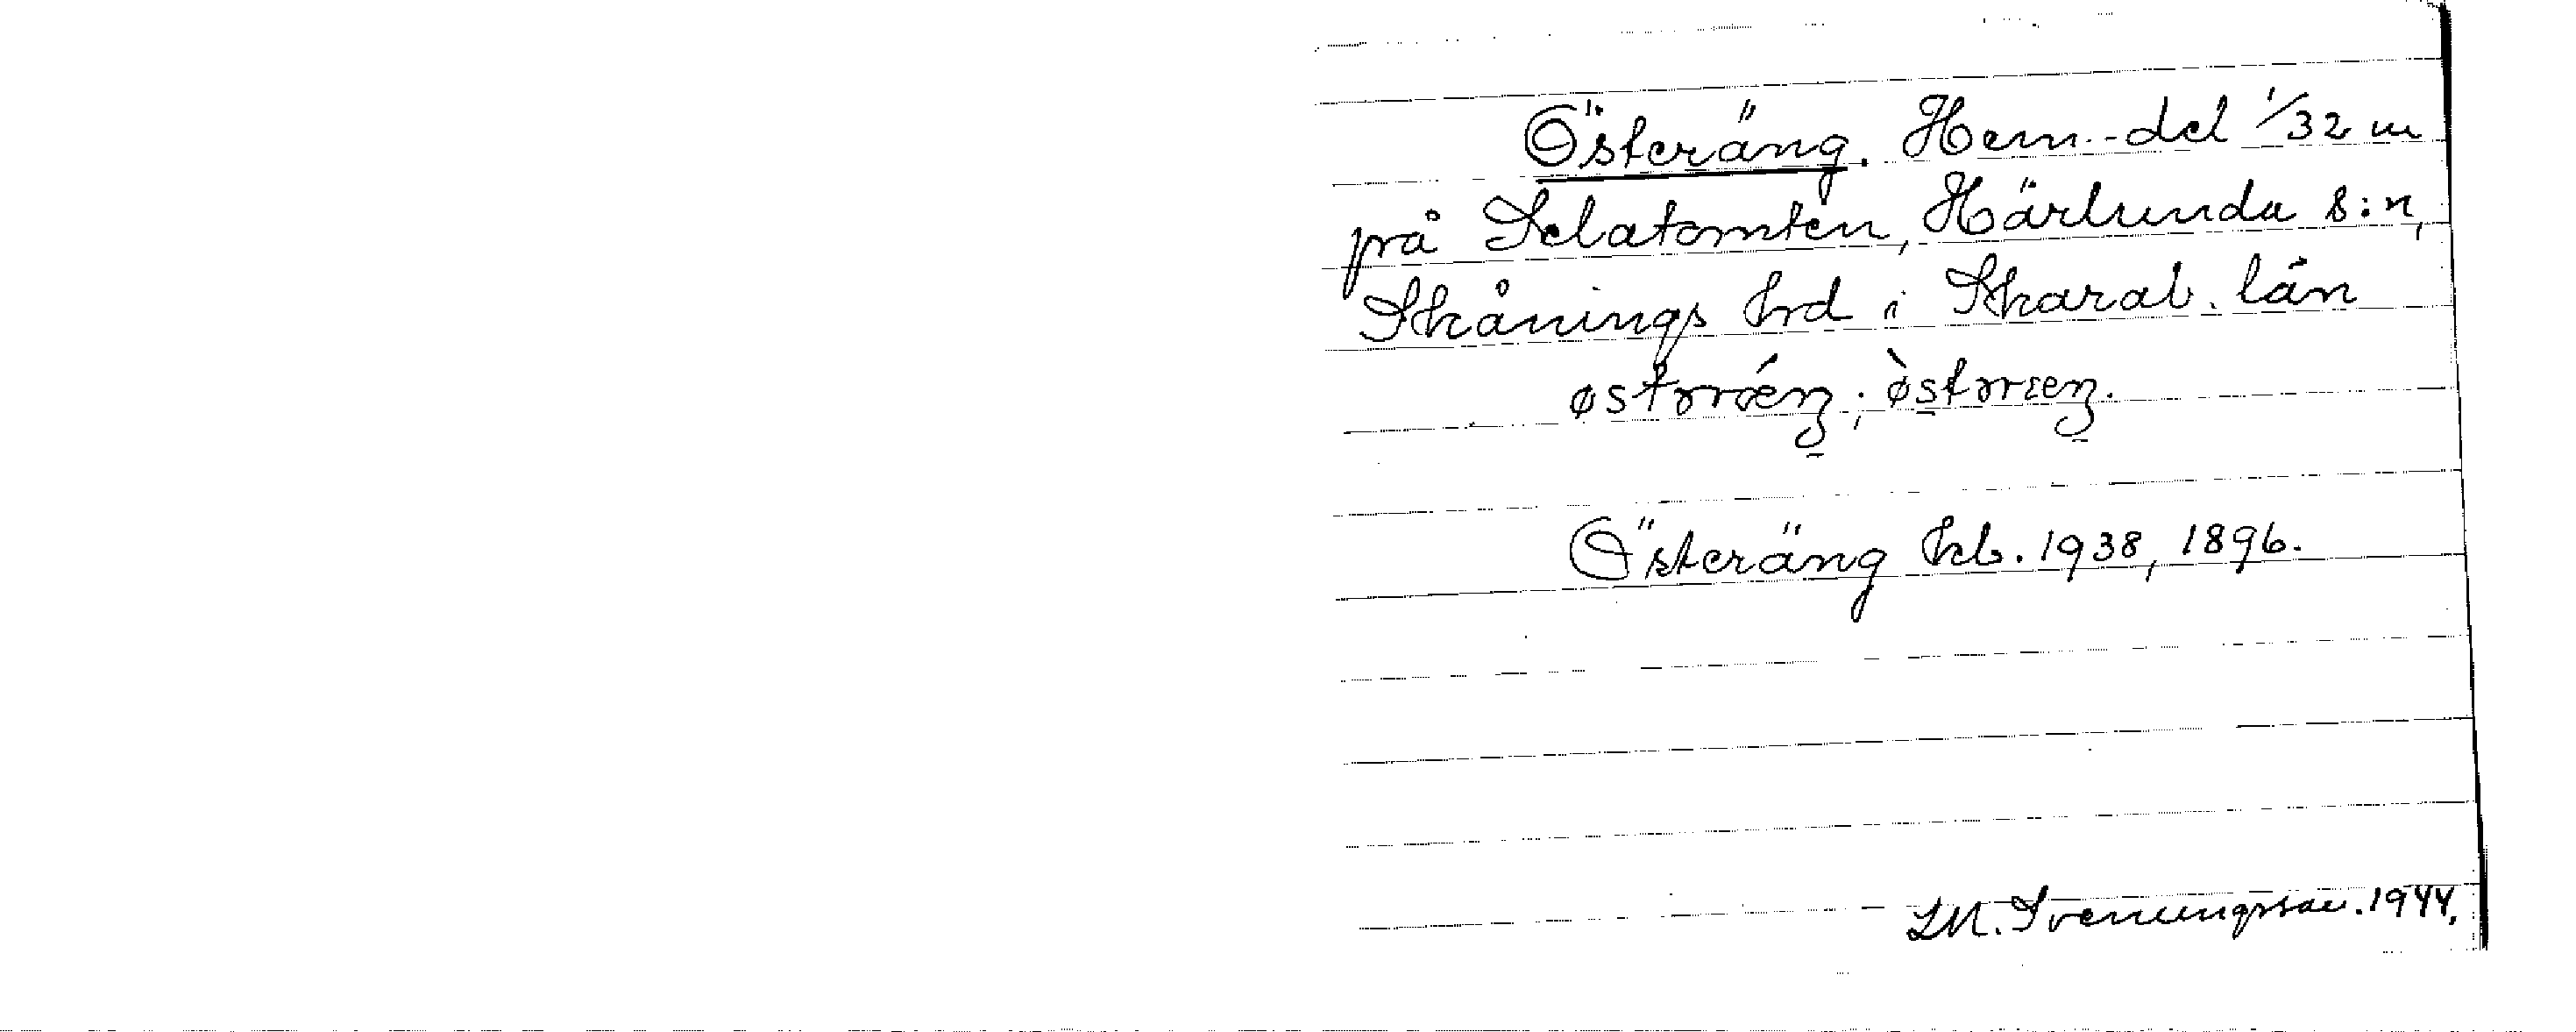 Österäng. Hem.-del 1/32 m
på Selatomten, Härlunda s:n,
Skånings hd i Skarab. län
østərǽŋ; ø̀stəræŋ.
Österäng kb. 1938, 1896.
M. Svenungsson. 1944.